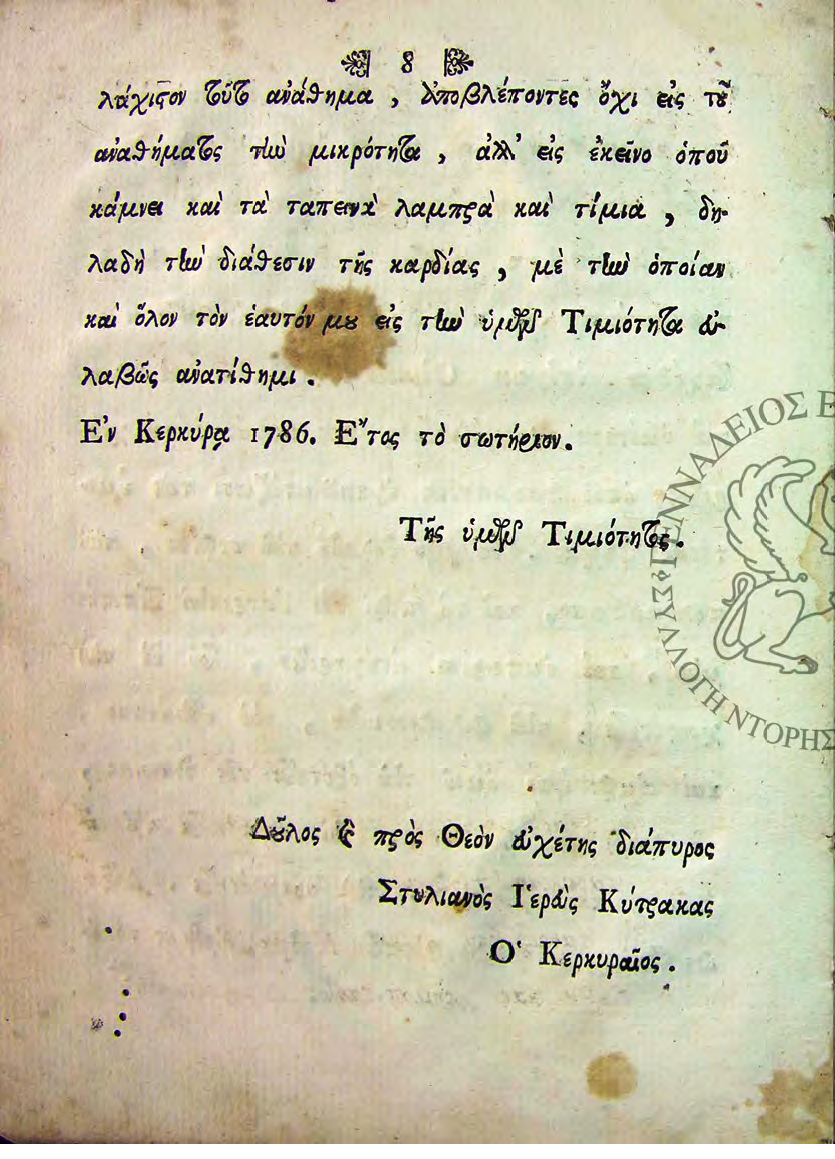 8
λάχιστον τοῦτο ἀνάθημα, ἀποβλέποντες ὄχι εἰς τοῦ
ἀναθήματος τὴν μικρότητα, ἀλλ' εἰς ἐκεῖνο ὁποῦ
κάμνει καὶ τὰ ταπεινὰ λαμπρὰ καὶ τίμια, δη-
λαδὴ τὴν διάθεσιν τῆς καρδίας, μὲ τὴν ὁποίαν
καὶ ὅλον τὸν ἑαυτόν μου εἰς τὴν ὑμῶν Τιμιότητα εὐ-
λαβῶς ἀνατίθημι.
Ἐν Κερκύρᾳ 1786. Ἔτος τὸ σωτήριον.
Τῆς ὑμῶν Τιμιότητος.
Δοῦλος καὶ πρὸς Θεὸν εὐχέτης διάπυρος
Στυλιανὸς Ἱερεὺς Κύτρακας
Ὁ Κερκυραῖος.
ΓΕΝΝΑΔΕΙΟΣ
ΣΥΛΛΟΓΗ ΝΤΟΡΗΣ